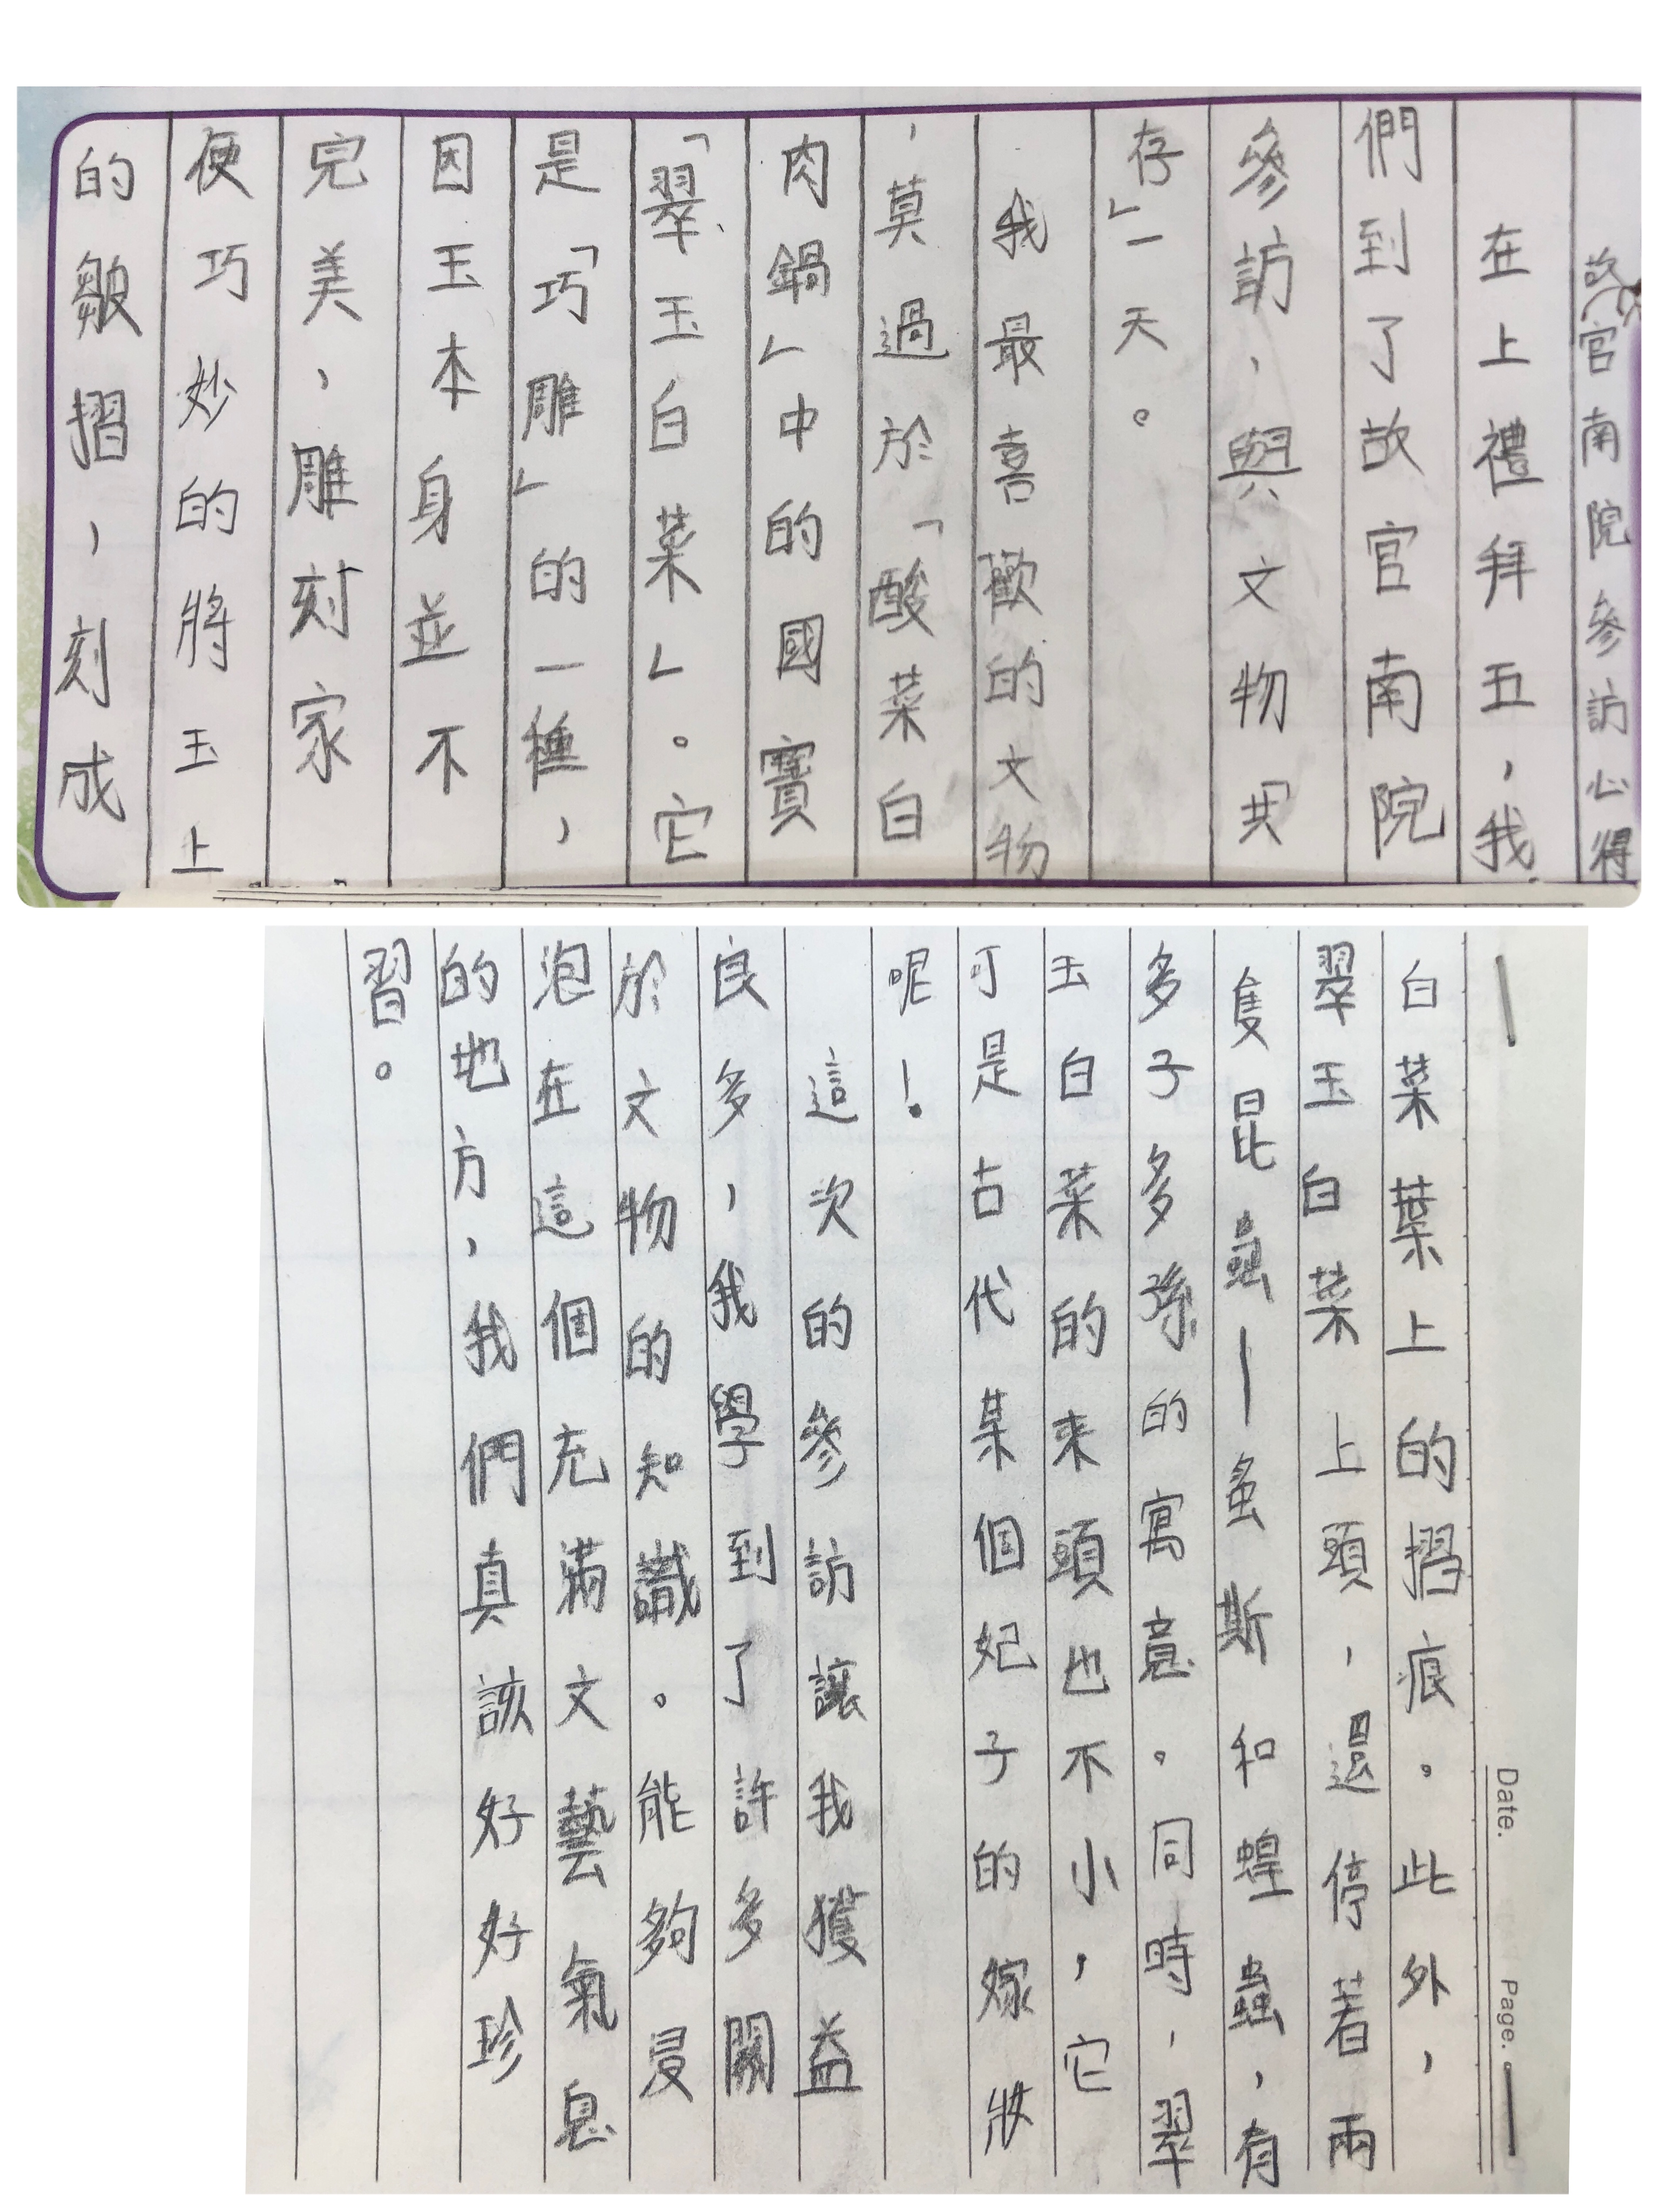 故宮南院參訪心得
在上禮拜五，我
們到了故宮南院
參訪，與文物「共
存」一天。
我最喜歡的文物
，莫過於「酸菜白
肉鍋」中的國寶
「翠玉白菜」。它
是「巧雕」的一種，
因玉本身並不
完美，雕刻家
便巧妙的將玉上
的皺摺，刻成
白菜葉上的摺痕。此外，
翠玉白菜上頭，還停著兩
隻昆蟲—螽斯和蝗蟲，有
多子多孫的寓意。同時，翠
玉白菜的來頭也不小，它
可是古代某個妃子的嫁妝
呢！
這次的參訪讓我獲益
良多，我學到了許多關
於文物的知識。能夠浸
泡在這個充滿文藝氣息
的地方，我們真該好好珍
習。
Date.
Page.